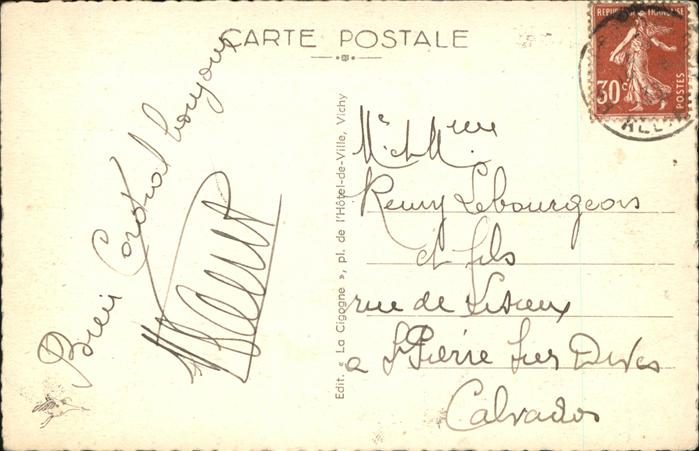 CARTE POSTALE
REPUBLIQUE FRANÇAISE
30c
POSTES
ALLIER
Bien Cordial bonjour
Edit. « La Cigogne », pl. de l'Hôtel-de-Ville, Vichy
Mr et Mme
Remy Lebourgeois
et fils
rue de Lisieux
a St Pierre sur Dives
Calvados